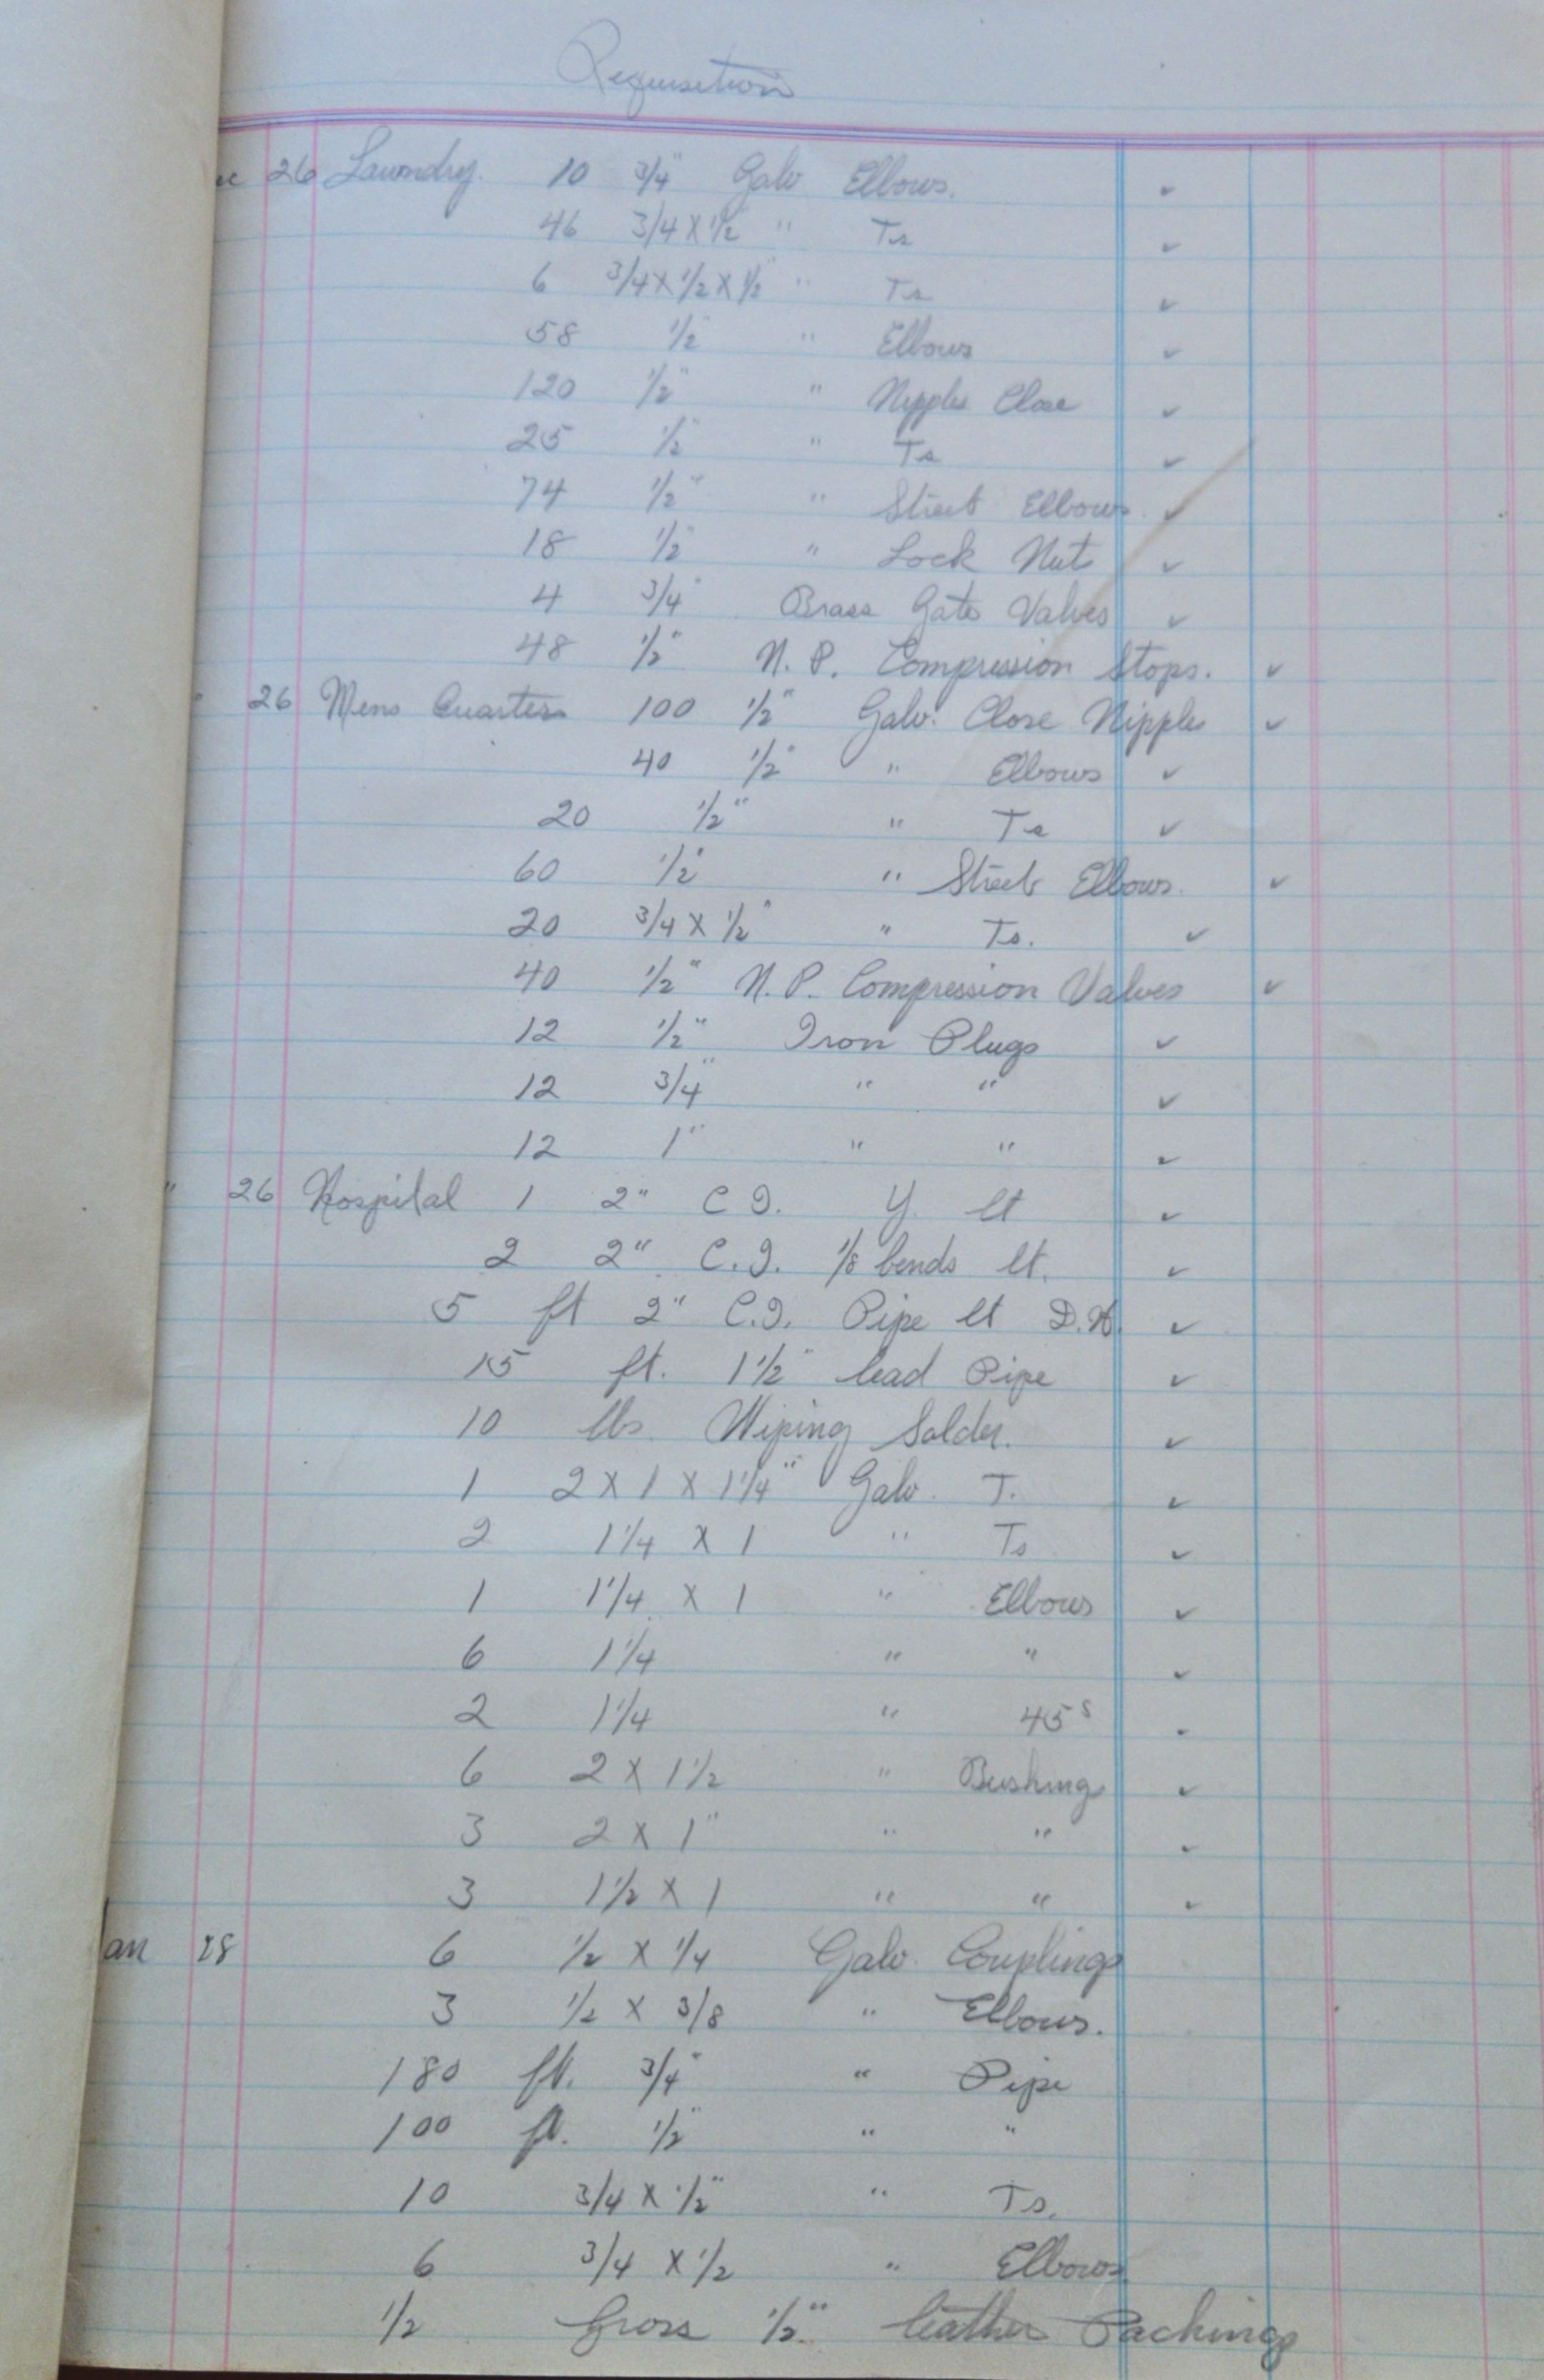 Requisition
26 Laundry. 10 3/4" Galv Elbows. ✓
46 3/4 X 1/2" " Ts ✓
6 3/4 X 1/2 X 1/2" " Ts ✓
58 1/2" " Elbows ✓
120 1/2" " Nipples Close ✓
25 1/2" " Ts ✓
74 1/2" " Street Elbows. ✓
18 1/2" " Lock Nuts ✓
4 3/4" Brass Gate Valves ✓
48 1/2" N. P. Compression Stops. ✓
" 26 Mens Quarters 100 1/2" Galv. Close Nipples ✓
40 1/2" " Elbows ✓
20 1/2" " Ts ✓
60 1/2" " Street Elbows. ✓
20 3/4 X 1/2" " Ts. ✓
40 1/2" N. P. Compression Valves ✓
12 1/2" Iron Plugs ✓
12 3/4" " " ✓
12 1" " " ✓
" 26 Hospital 1 2" C I. Y. lt ✓
2 2" C. I. 1/8 bends lt. ✓
5 ft 2" C. I. Pipe lt D. H. ✓
15 ft. 1 1/2" lead Pipe ✓
10 lbs. Wiping Solder. ✓
1 2 X 1 X 1 1/4" Galv. T. ✓
2 1 1/4 X 1 " Ts ✓
1 1 1/4 X 1 " Elbows ✓
6 1 1/4 " " ✓
2 1 1/4 " 45s ✓
6 2 X 1 1/2 " Bushing ✓
3 2 X 1" " " ✓
3 1 1/2 X 1 " " ✓
Jan 28 6 1/2 X 1/4 Galv. Couplings
3 1/2 X 3/8 " Elbows.
180 ft. 3/4" " Pipe
100 ft. 1/2" " "
10 3/4 X 1/2" " Ts.
6 3/4 X 1/2 " Elbows.
1/2 Gross 1/2" leather Packings